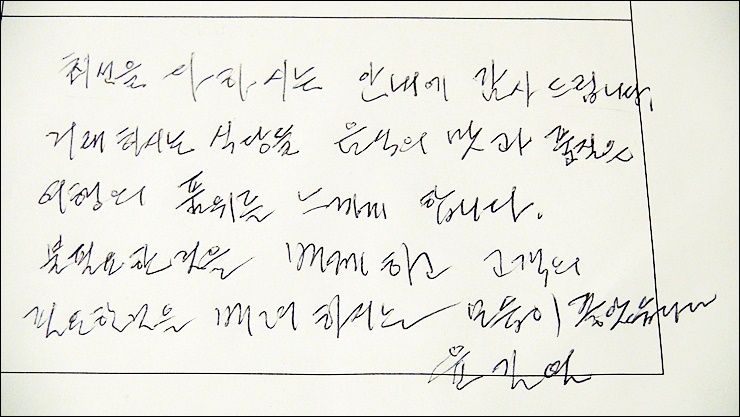 최선을 다하시는 안내에 감사드립니다.
거래하시는 식당들 음식의 맛과 품질은
여행의 품위를 느끼게 합니다.
불필요한 것을 배제하고 고객의
필요한 것을 배려하시는 모습이 좋았습니다